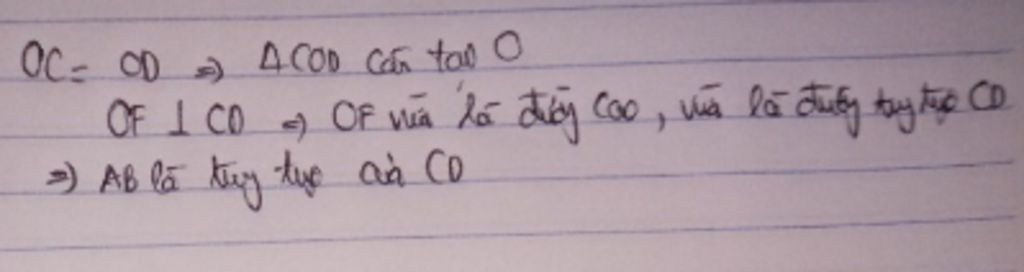 OC = OD => ΔCOD cân tại O
OF ⊥ CD => OF vừa là đường cao, vừa là đường trung trực CD
=> AB là trung trực của CD